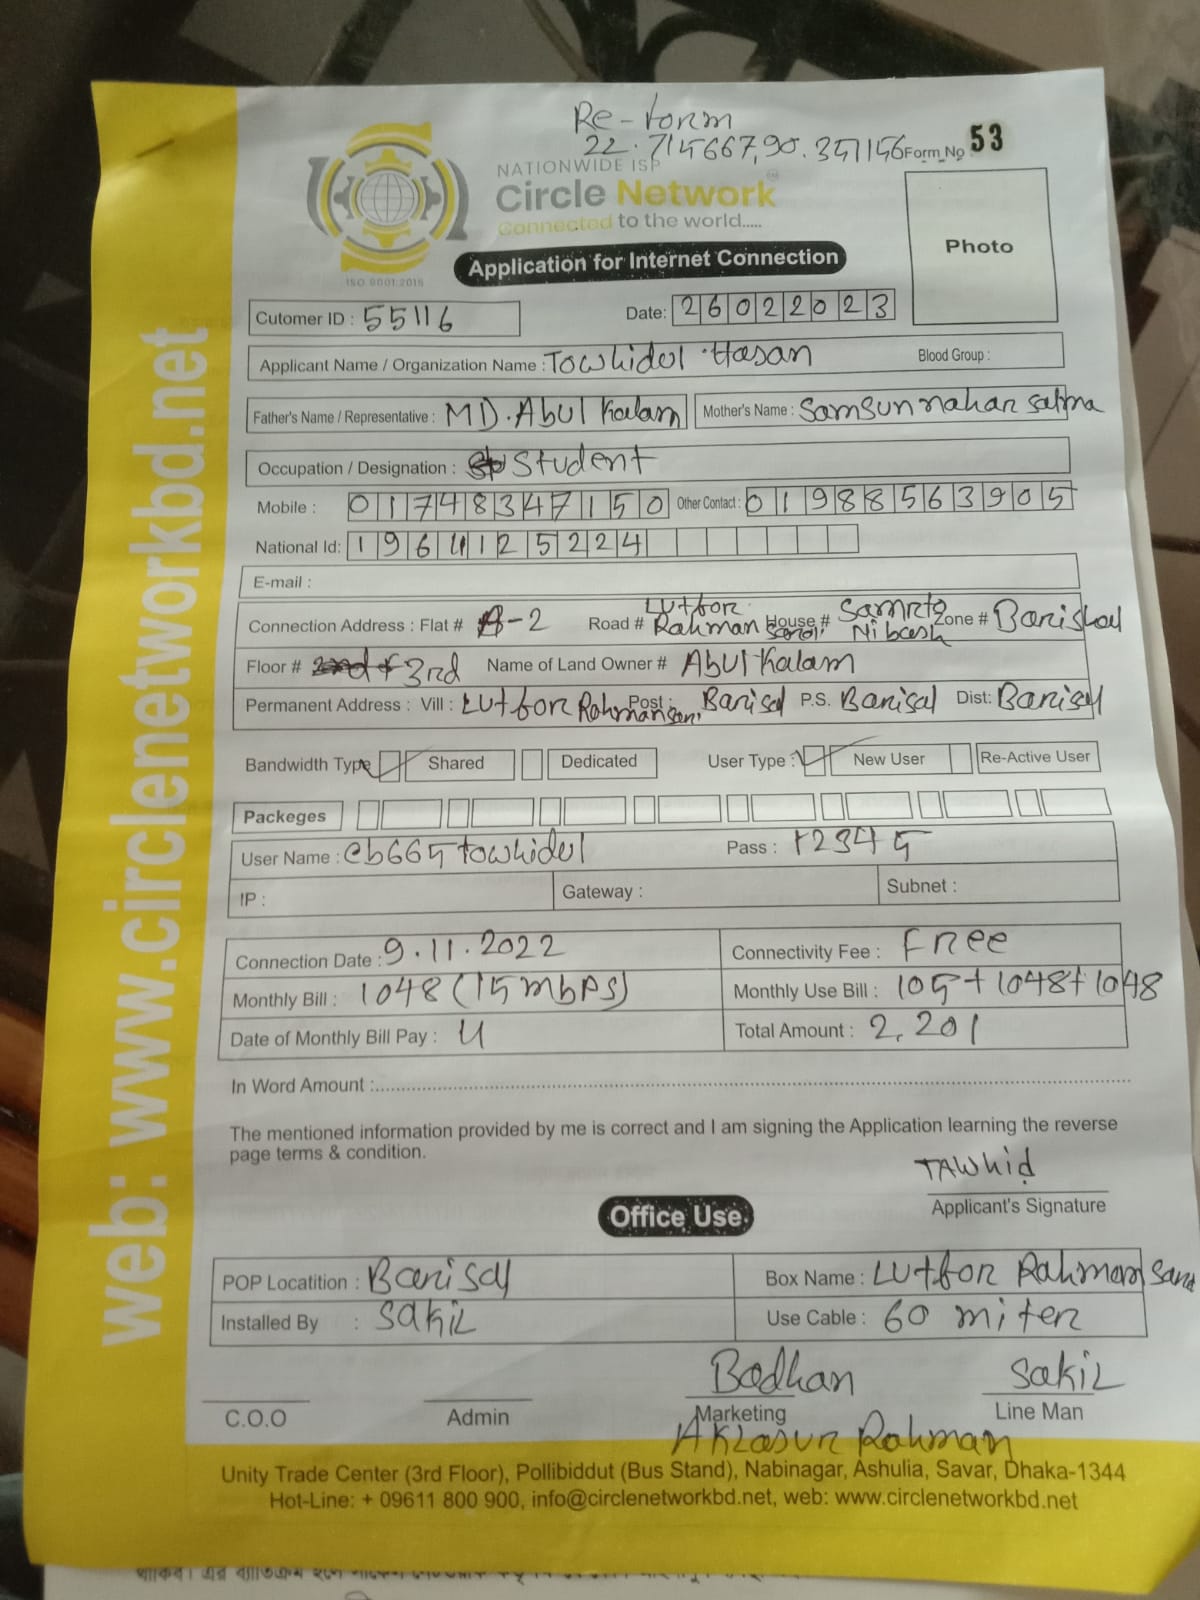 Re-form
22.715667,90.351156 Form No 53
NATIONWIDE ISP
Circle Network
Connected to the world.....
ISO 9001:2015
Photo
Application for Internet Connection
Cutomer ID : 55116 Date: 26022023
Applicant Name / Organization Name : Towhidul Hasan Blood Group :
Father's Name / Representative : MD. Abul Kalam Mother's Name : Samsunnahar Salma
Occupation / Designation : Student
Mobile : 01748347150 Other Contact : 01988563905
National Id: 1964125224
E-mail :
Connection Address : Flat # A-2 Road # Lutfor Rahman Sarok House # Samrto Nibash Zone # Barishal
Floor # 3rd Name of Land Owner # Abul Kalam
Permanent Address : Vill : Lutfor Rahman Post : Barisal P.S. Barisal Dist: Barisal
Bandwidth Type Shared Dedicated User Type : New User Re-Active User
Packeges
User Name : cb665towhidul Pass : 12345
IP : Gateway : Subnet :
Connection Date : 9.11.2022 Connectivity Fee : Free
Monthly Bill : 1048 (15 mbps) Monthly Use Bill : 105+1048+1048
Date of Monthly Bill Pay : Total Amount : 2,201
In Word Amount :
The mentioned information provided by me is correct and I am signing the Application learning the reverse
page terms & condition.
TAWhid
Applicant's Signature
Office Use.
POP Locatition : Barisal Box Name : Lutfor Rahman
Installed By : Sakil Use Cable : 60 miter
Bodhan Sakil
C.O.O Admin Marketing Line Man
Aklasur Rahman
Unity Trade Center (3rd Floor), Pollibiddut (Bus Stand), Nabinagar, Ashulia, Savar, Dhaka-1344
Hot-Line: + 09611 800 900, info@circlenetworkbd.net, web: www.circlenetworkbd.net
web: www.circlenetworkbd.net